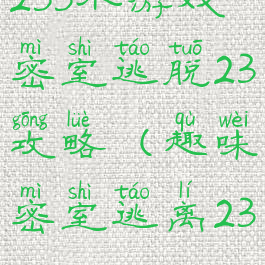 mì shì táo tuō
密室逃脱23
gōng lüè qù wèi
攻略（趣味
mì shì táo lí
密室逃离23